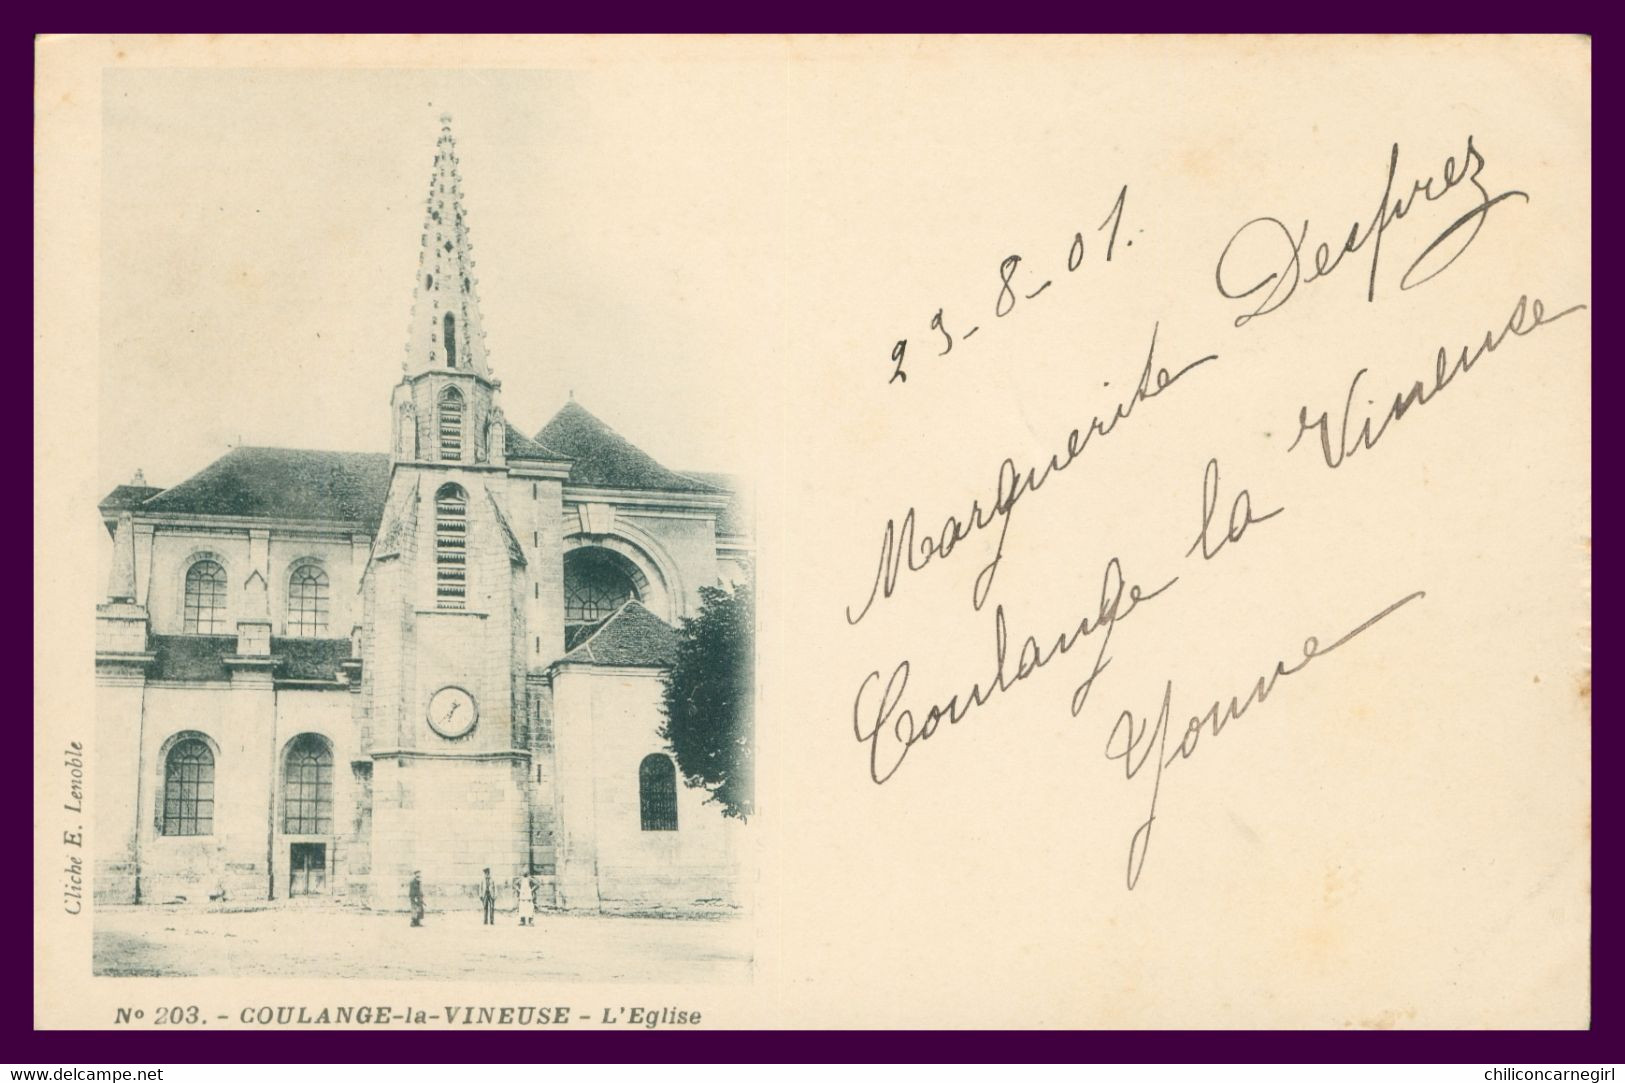 Cliché E. Lenoble
Nº 203. - COULANGE-la-VINEUSE - L'Eglise
23-8-01.
Marguerite Desprez
Coulange la Vineuse
Yonne
www.delcampe.net
chiliconcarnegirl